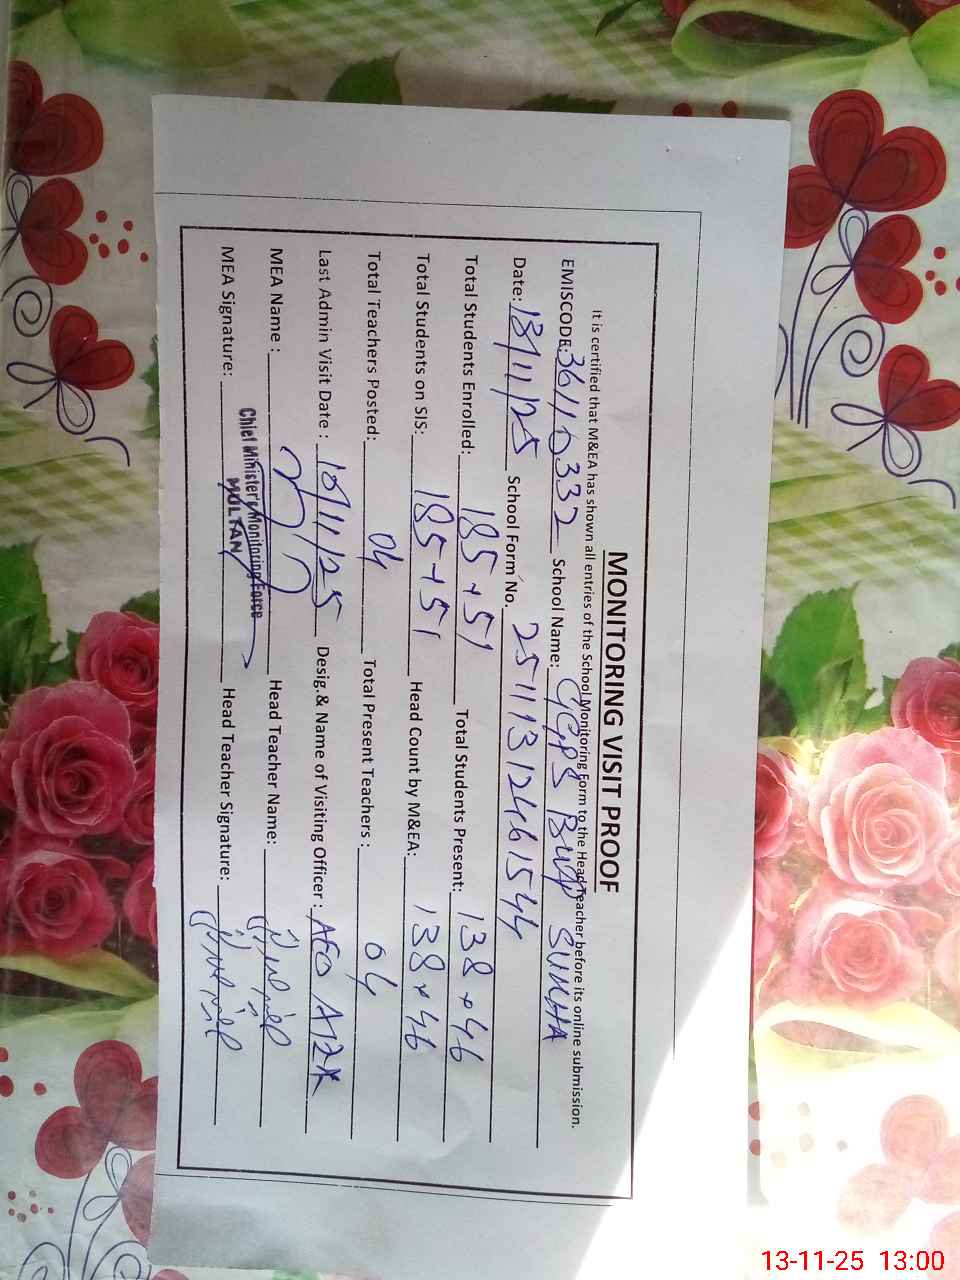 MONITORING VISIT PROOF
It is certified that M&EA has shown all entries of the School Monitoring Form to the Head Teacher before its online submission.
EMISCODE: 36110332 School Name: GGPS Buwa SUKHA
Date: 13/11/25 School Form No. 25111312461544
Total Students Enrolled: 185+51 Total Students Present: 138+46
Total Students on SIS: 185+51 Head Count by M&EA: 138+46
Total Teachers Posted: 04 Total Present Teachers: 04
Last Admin Visit Date: 10/11/25 Desig.& Name of Visiting Officer: AEO
MEA Name: Head Teacher Name:
Chief Minister's Monitoring Force
MULTAN
MEA Signature: Head Teacher Signature:
13-11-25 13:00